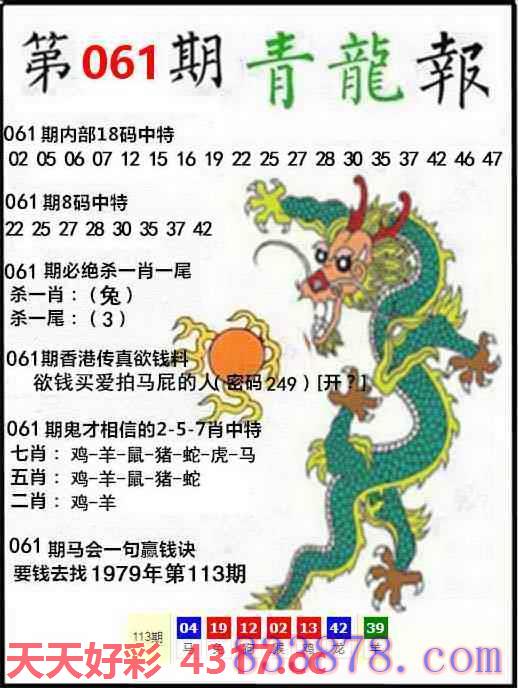 第061期青龍報
061期内部18码中特
02 05 06 07 12 15 16 19 22 25 27 28 30 35 37 42 46 47
061期8码中特
22 25 27 28 30 35 37 42
061期必绝杀一肖一尾
杀一肖：(兔)
杀一尾：(3)
061期香港传真欲钱料
欲钱买爱拍马屁的人(密码249)[开?]
061期鬼才相信的2-5-7肖中特
七肖：鸡-羊-鼠-猪-蛇-虎-马
五肖：鸡-羊-鼠-猪-蛇
二肖：鸡-羊
061期马会一句赢钱诀
要钱去找1979年第113期
113期 04 19 12 02 13 42 39
马 兔 龙 羊
天天好彩 4317.cc